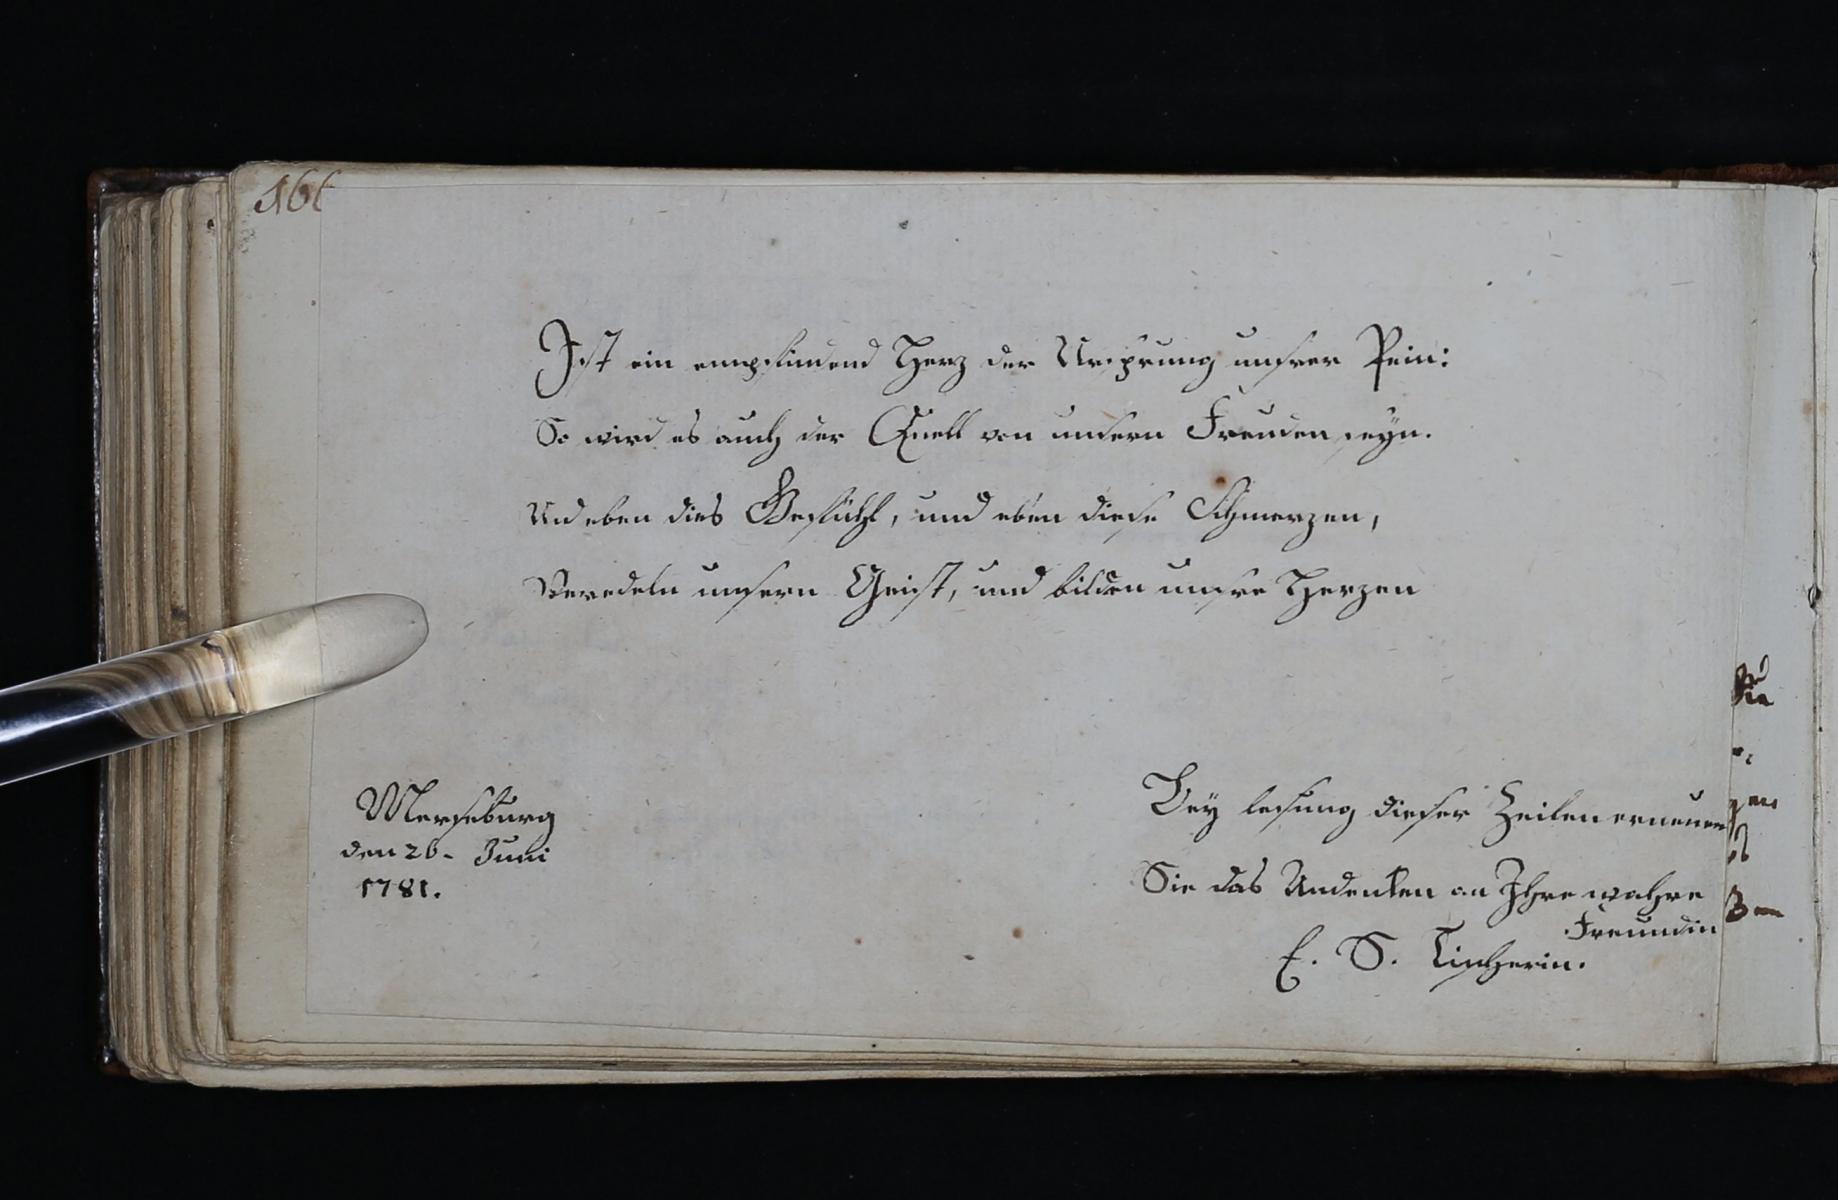 166
Ist ein empfindend Herz der Ursprung unsrer Pein:
So wird es auch der Quell von unsern Freuden seyn.
Und eben dies Gefühl, und eben diese Schmerzen,
Veredeln unsern Geist, und bilden unsre Herzen
Merseburg
den 26. Juni
1781.
Bey lesung dieser Zeilen erneuern
Sie das Andenken an Ihre wahre
Freundin
E. S. Tischerin.